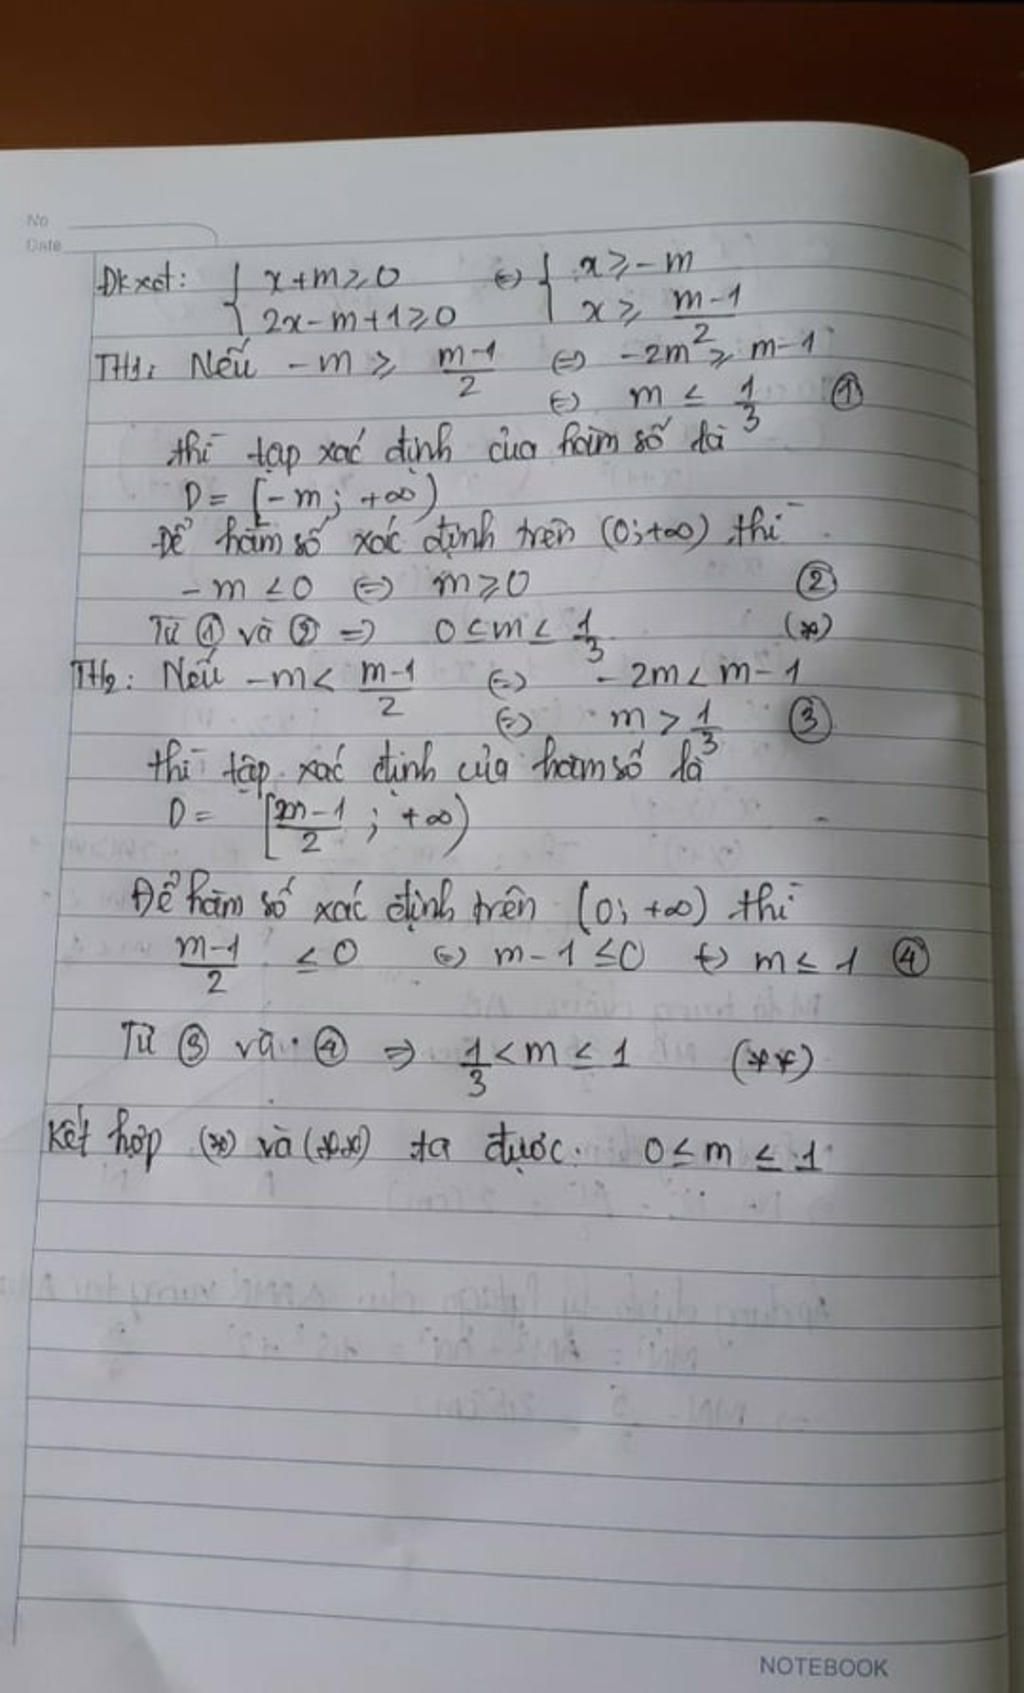 No
Date
Đk xét: { x+m ≥ 0 ⇔ { x ≥ -m
2x-m+1 ≥ 0 x ≥ (m-1)/2
TH1: Nếu -m ≥ (m-1)/2 ⇔ -2m ≥ m-1
⇔ m ≤ 1/3 ①
thì tập xác định của hàm số là
D = [-m; +∞)
Để hàm số xác định trên (0;+∞) thì
-m < 0 ⇔ m ≥ 0 ②
Từ ① và ② ⇒ 0 ≤ m ≤ 1/3 (*)
TH2: Nếu -m < (m-1)/2 ⇔ -2m < m-1
⇔ m > 1/3 ③
thì tập xác định của hàm số là
D = [(m-1)/2 ; +∞)
Để hàm số xác định trên (0; +∞) thì
(m-1)/2 ≤ 0 ⇔ m-1 ≤ 0 ⇔ m ≤ 1 ④
Từ ③ và ④ ⇒ 1/3 < m ≤ 1 (**)
Kết hợp (*) và (**) ta được. 0 ≤ m ≤ 1
NOTEBOOK